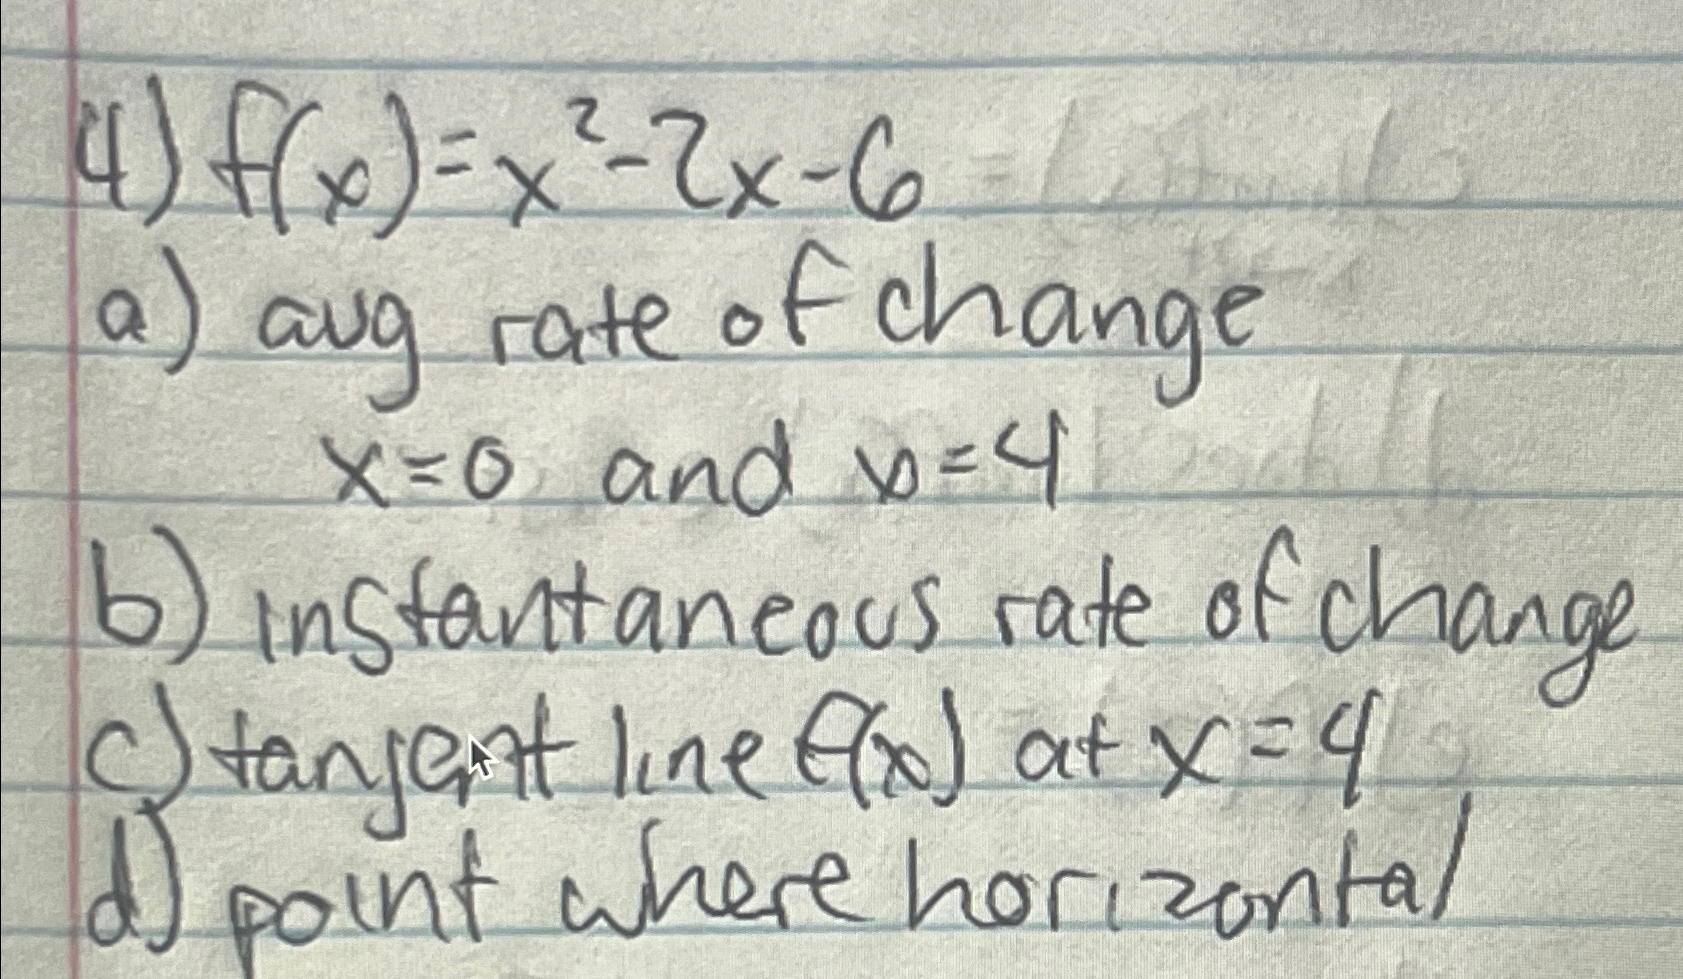 4) f(x)=x²-2x-6
a) avg rate of change
x=0 and x=4
b) instantaneous rate of change
c) tangent line f(x) at x=4
d) point where horizontal